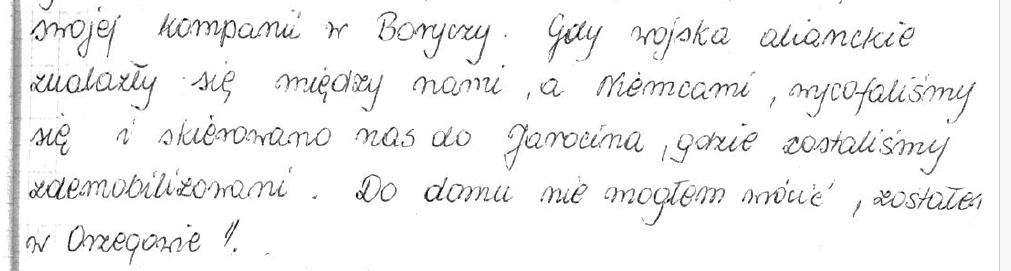 swojej kompanii w Boryczy. Gdy wojska alianckie
znalazły się między nami, a Niemcami, wycofaliśmy
się i skierowano nas do Jarocina, gdzie zostaliśmy
zdemobilizowani. Do domu nie mogłem wrócić, zostałem
w Orzegowie".